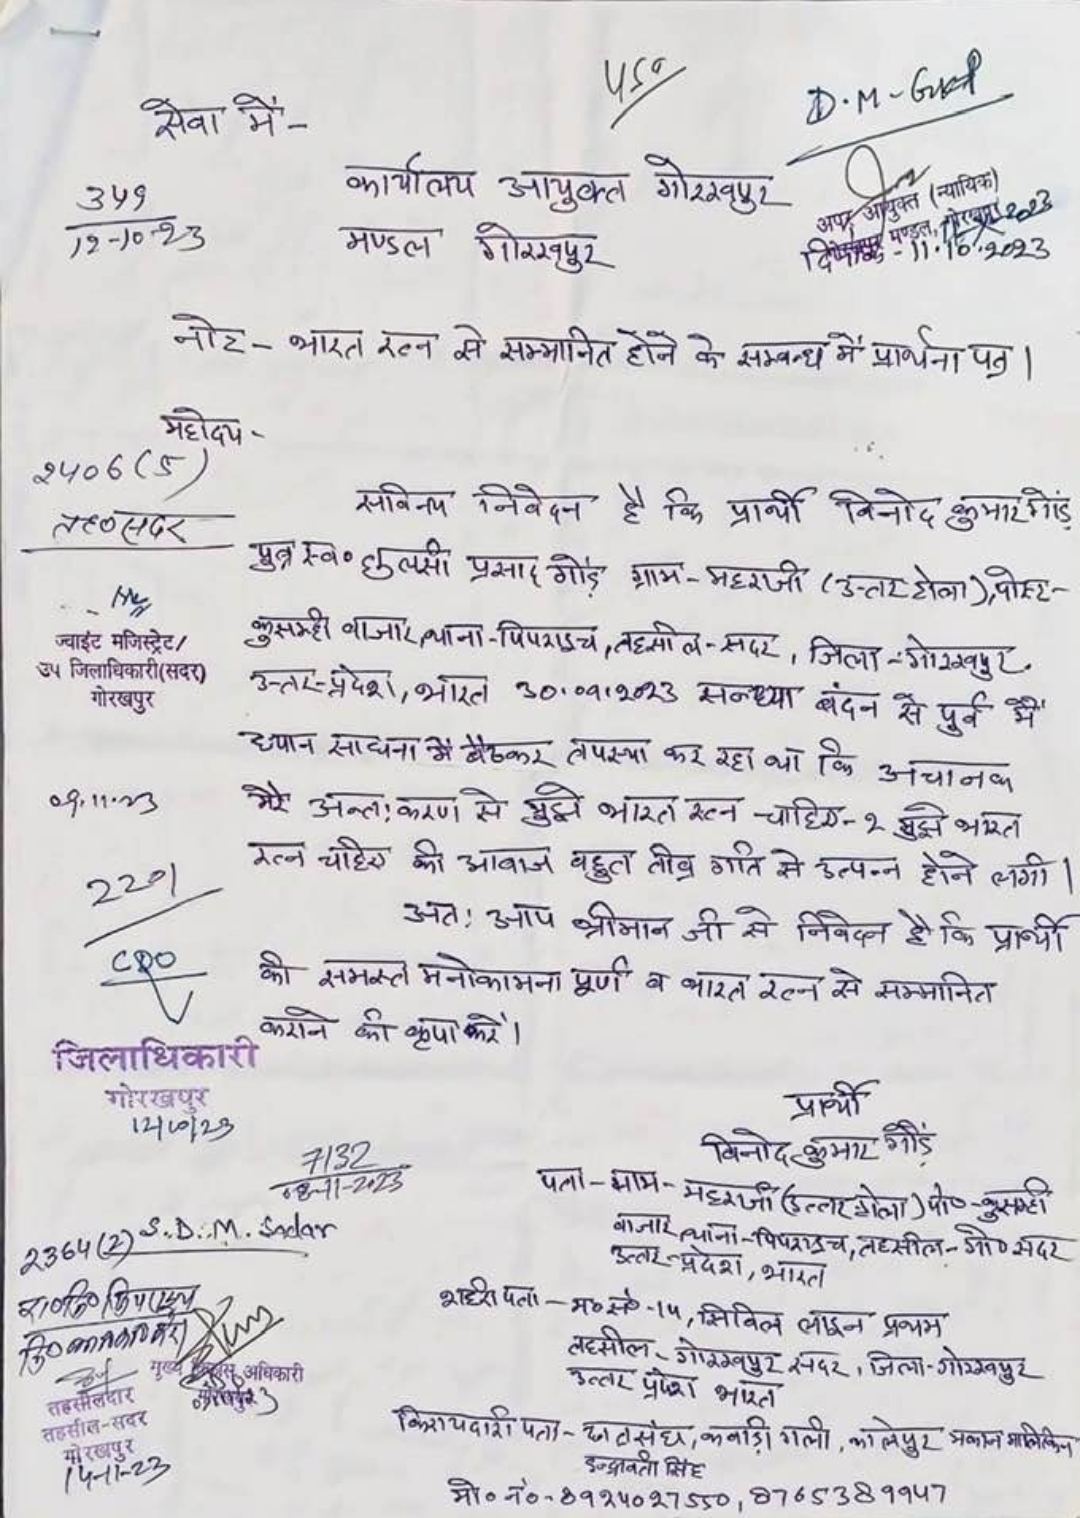 450
D.M-GKP
सेवा में-
कार्यालय आयुक्त गोरखपुर
मण्डल गोरखपुर
349
12-10-23
अपर आयुक्त (न्यायिक)
मण्डल, गोरखपुर
दिनांक-11.10.2023
नोट- भारत रत्न से सम्मानित होने के सम्बन्ध में प्रार्थना पत्र।
महोदय-
2406(5)
तह० सदर
ज्वाईट मजिस्ट्रेट/
उप जिलाधिकारी(सदर)
गोरखपुर
सविनय निवेदन है कि प्रार्थी विनोद कुमार गोंड़
पुत्र स्व० तुलसी प्रसाद गोंड़ ग्राम-महराजी (उत्तर टोला),पोस्ट-
कुसम्ही बाजार,थाना-पिपराइच,तहसील-सदर, जिला-गोरखपुर.
उत्तर-प्रदेश, भारत 30.09.2023 सन्ध्या बंदन से पुर्व में
ध्यान साधना में बैठकर तपस्या कर रहा था कि अचानक
मेरे अन्त:करण से मुझे भारत रत्न चाहिए-2 मुझे भारत
रत्न चाहिए की आवाज बहुत तीव्र गति से उत्पन्न होने लगी।
अत: आप श्रीमान जी से निवेदन है कि प्रार्थी
की समस्त मनोकामना पूर्ण व भारत रत्न से सम्मानित
कराने की कृपा करें।
09.11.23
2201
CDO
जिलाधिकारी
गोरखपुर
12/10/23
7132
08-11-2023
2364(2) S.D.M. Sadar
मुख्य विकास अधिकारी
गोरखपुर
तहसीलदार
तहसील-सदर
गोरखपुर
14-11-23
प्रार्थी
विनोद कुमार गोंड़
पता-ग्राम-महराजी(उत्तर टोला)पो०-कुसम्ही
बाजार,थाना-पिपराइच,तहसील-गो० सदर
उत्तर-प्रदेश, भारत
शहरी पता-म० सं०-14, सिविल लाइन प्रथम
तहसील-गोरखपुर सदर, जिला-गोरखपुर
उत्तर प्रदेश भारत
किरायदारी पता- कबाड़ी गली, मकान मालकिन
इन्द्रावती सिंह
मो० नं०-8924027550, 8765389947